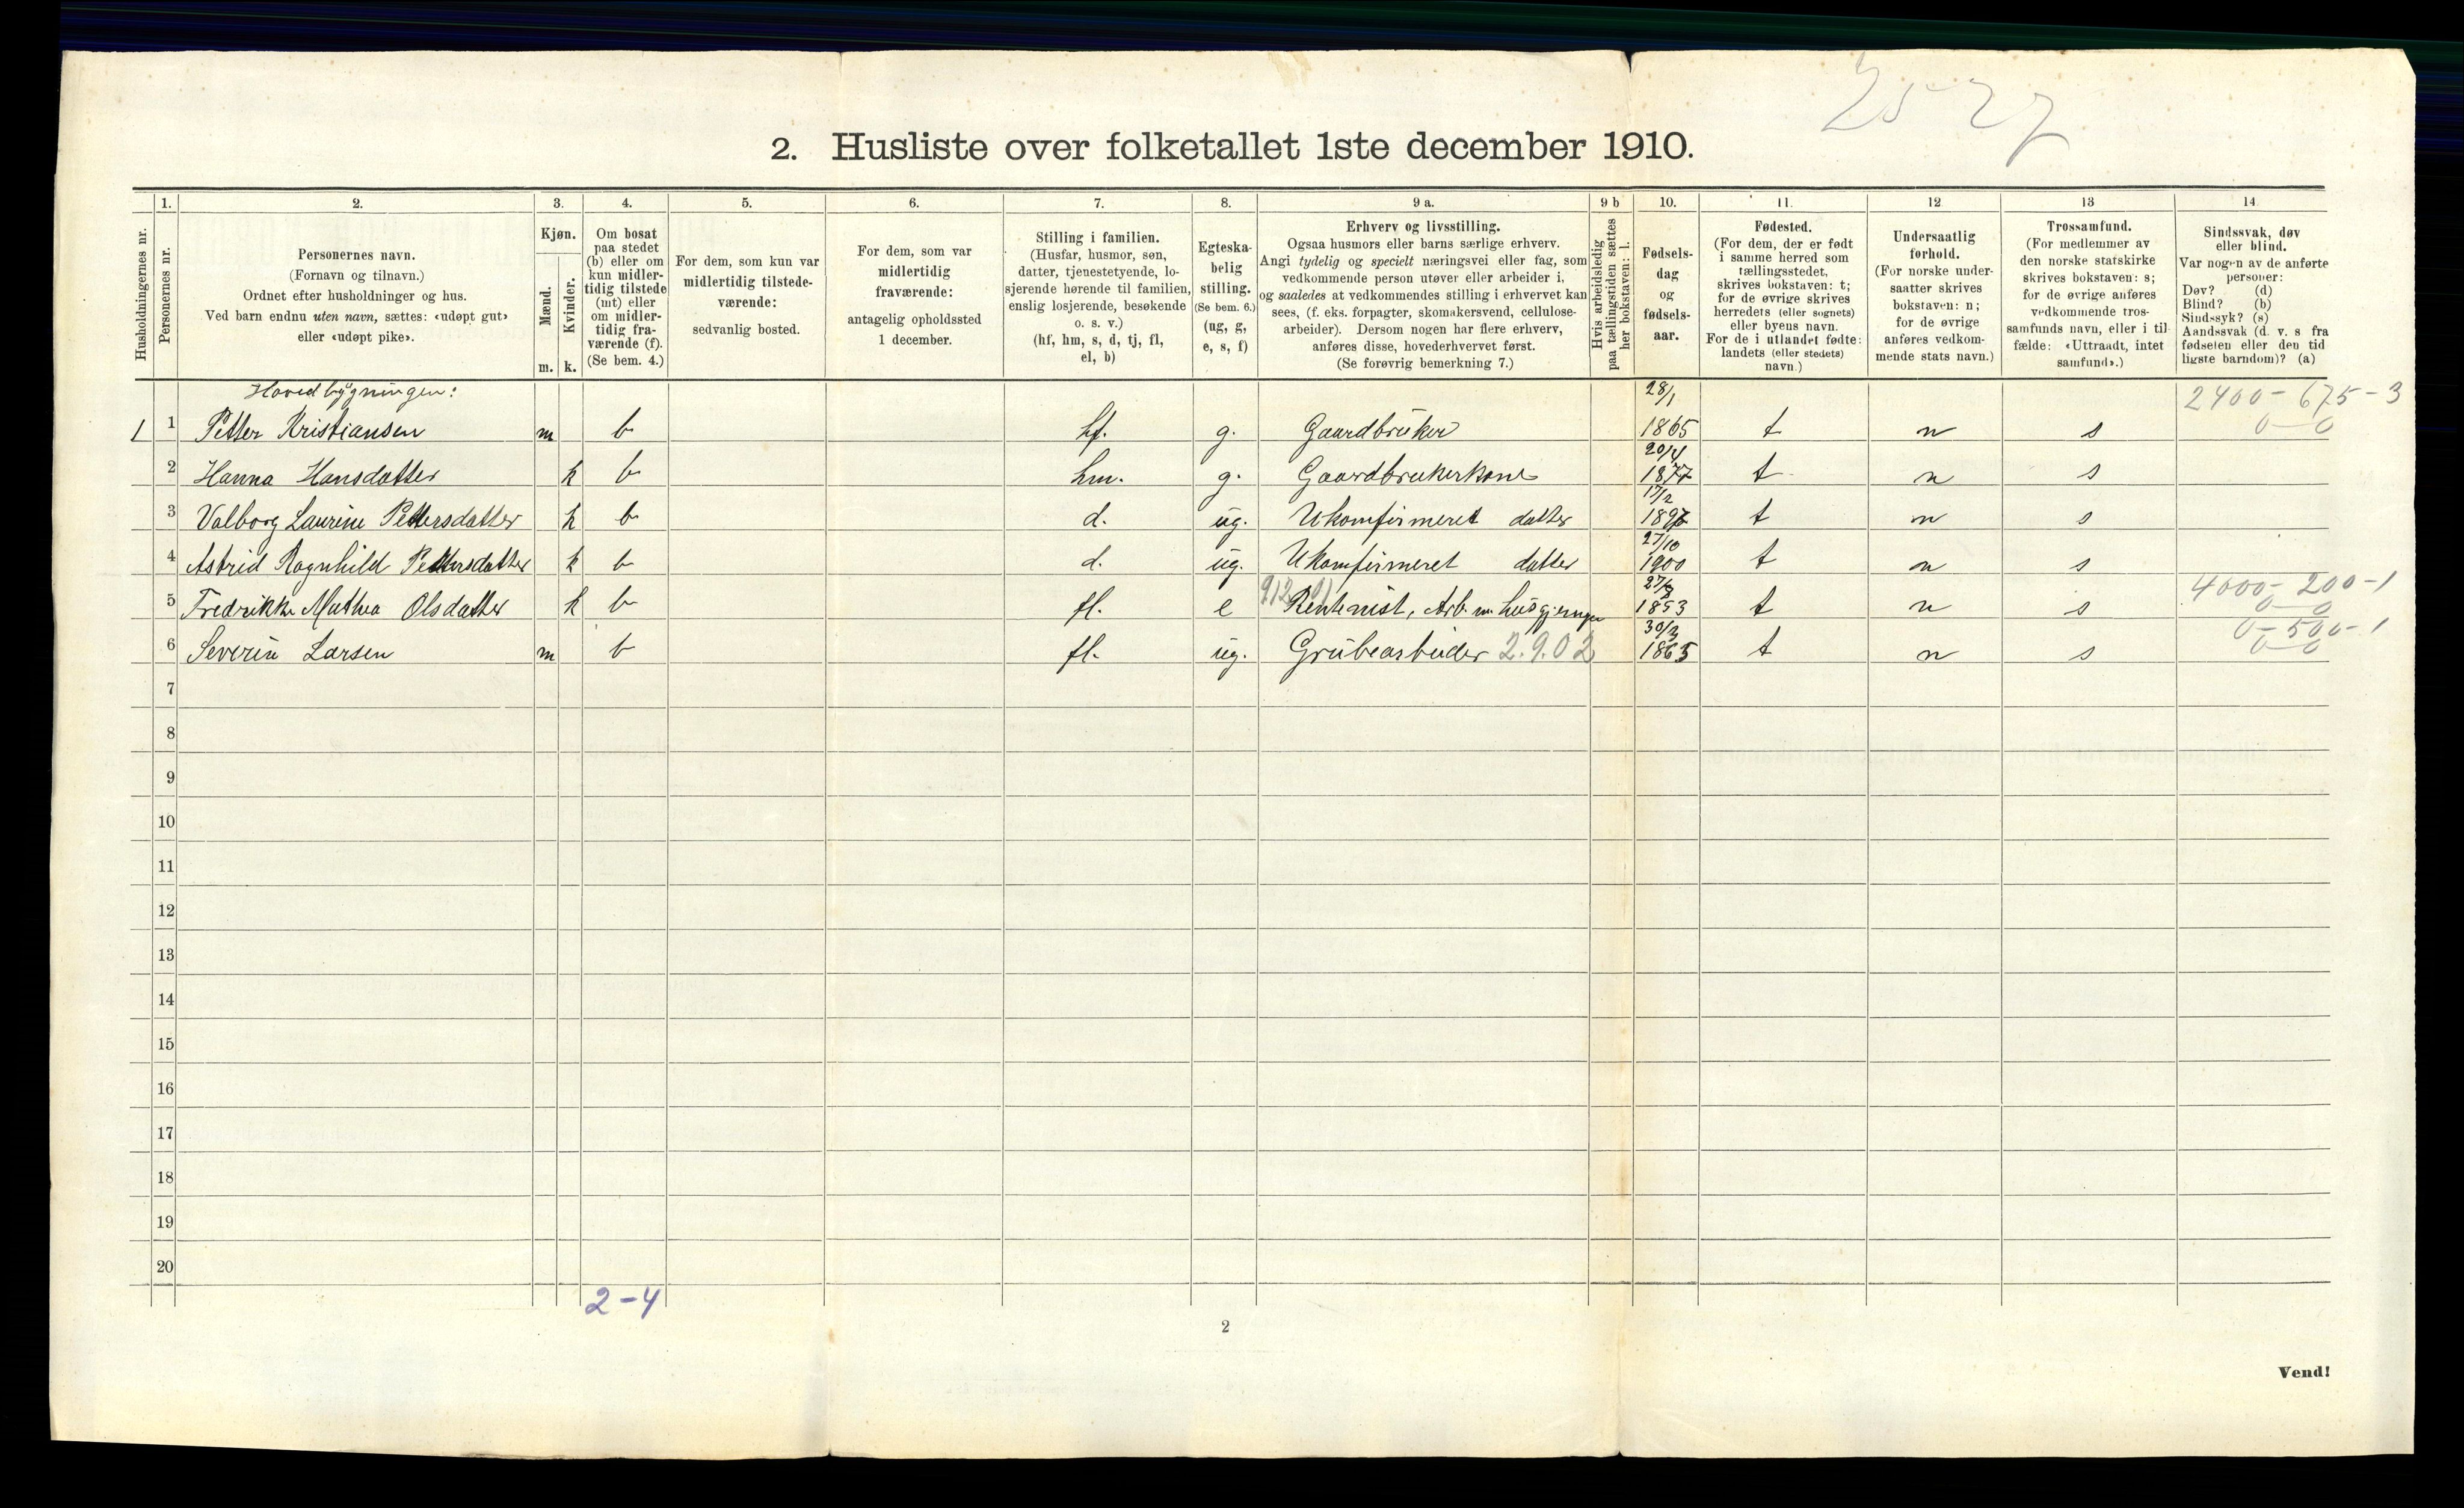 25-27
2. Husliste over folketallet 1ste december 1910.
Husholdningernes nr.
1.
Personernes nr.
2.
Personernes navn.
(Fornavn og tilnavn.)
Ordnet efter husholdninger og hus.
Ved barn endnu uten navn, sættes: «udøpt gut»
eller «udøpt pike».
3.
Kjøn.
Mænd.
Kvinder.
m. k.
4.
Om bosat
paa stedet
(b) eller om
kun midler-
tidig tilstede
(mt) eller
om midler-
tidig fra-
værende (f).
(Se bem. 4.)
5.
For dem, som kun var
midlertidig tilstede-
værende:
sedvanlig bosted.
6.
For dem, som var
midlertidig
fraværende:
antagelig opholdssted
1 december.
7.
Stilling i familien.
(Husfar, husmor, søn,
datter, tjenestetyende, lo-
sjerende hørende til familien,
enslig losjerende, besøkende
o. s. v.)
(hf, hm, s, d, tj, fl,
el, b)
8.
Egteska-
belig
stilling.
(Se bem. 6.)
(ug, g,
e, s, f)
9 a.
Erhverv og livsstilling.
Ogsaa husmors eller barns særlige erhverv.
Angi tydelig og specielt næringsvei eller fag, som
vedkommende person utøver eller arbeider i,
og saaledes at vedkommendes stilling i erhvervet kan
sees, (f. eks. forpagter, skomakersvend, cellulose-
arbeider). Dersom nogen har flere erhverv,
anføres disse, hovederhvervet først.
(Se forøvrig bemerkning 7.)
9 b
Hvis arbeidsledig
paa tællingstiden sættes
her bokstaven: l.
10.
Fødsels-
dag
og
fødsels-
aar.
11.
Fødested.
(For dem, der er født
i samme herred som
tællingsstedet,
skrives bokstaven: t;
for de øvrige skrives
herredets (eller sognets)
eller byens navn.
For de i utlandet fødte:
landets (eller stedets)
navn.)
12
Undersaatlig
forhold.
(For norske under-
saatter skrives
bokstaven: n;
for de øvrige
anføres vedkom-
mende stats navn.)
13
Trossamfund.
(For medlemmer av
den norske statskirke
skrives bokstaven: s;
for de øvrige anføres
vedkommende tros-
samfunds navn, eller i til
fælde: «Uttraadt, intet
samfund».)
14
Sindssvak, døv
eller blind.
Var nogen av de anførte
personer:
Døv? (d)
Blind? (b)
Sindssyk? (s)
Aandssvak (d. v. s fra
fødselen eller den tid
ligste barndom)? (a)
Hovedbygningen: 28/1 2400-675-3
1 1 Petter Kristiansen m b hf. g. Gaardbruker 1865 t n s 0-0
20/4
2 Hanna Hansdatter k b hm. g. Gaardbrukerkone 1877 t n s
17/2
3 Valborg Laurine Pettersdatter k b d. ug. Ukomfirmeret datter 1897 t n s
27/10
4 Astrid Ragnhild Pettersdatter k b d. ug. Ukomfirmeret datter 1900 t n s
27/8 4000-200-1
5 Fredrikke Mathea Olsdatter k b fl. e Rentenist, Arb. m. husgjerninger 1853 t n s 0-0
30/3 0-500-1
6 Severin Larsen m b fl. ug. Grubearbeider 2.9.02 1865 t n s 0-0
7
8
9
10
11
12
13
14
15
16
17
18
19
20
2-4
2
Vend!